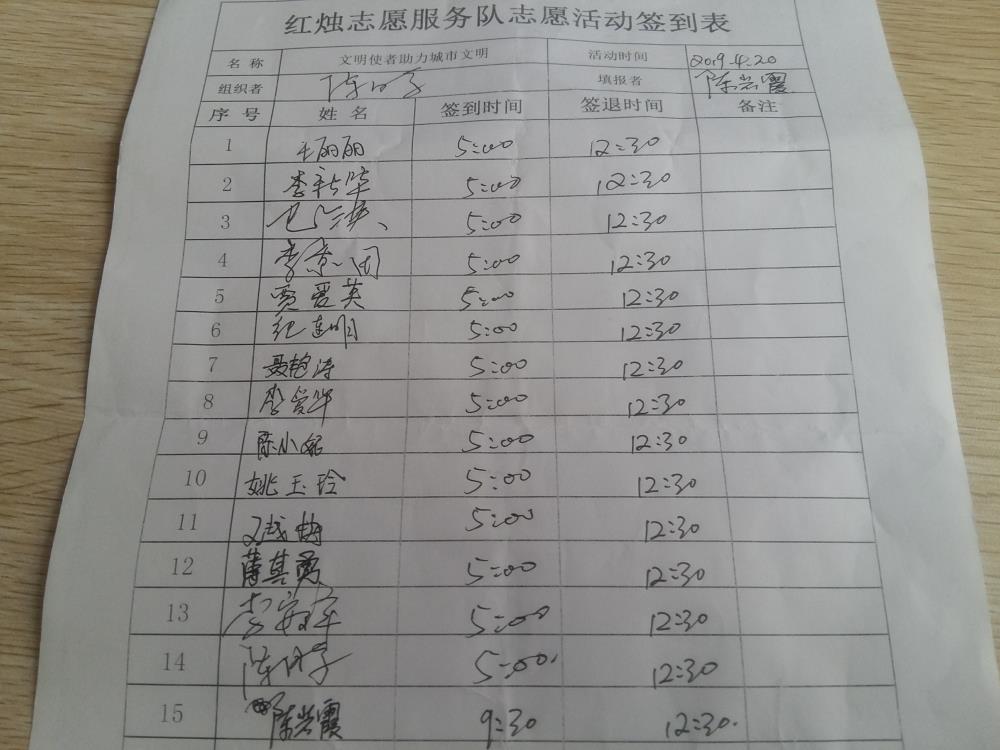 红烛志愿服务队志愿活动签到表
名称 文明使者助力城市文明 活动时间 2019.4.20
组织者 填报者 陈兰霞
序号 姓名 签到时间 签退时间 备注
1 王丽丽 5:00 12:30
2 李新华 5:00 12:30
3 5:00 12:30
4 李 5:00 12:30
5 贾爱英 5:00 12:30
6 纪连明 5:00 12:30
7 聂艳涛 5:00 12:30
8 李爱华 5:00 12:30
9 陈小娟 5:00 12:30
10 姚玉玲 5:00 12:30
11 5:00 12:30
12 薄其勇 5:00 12:30
13 5:00 12:30
14 5:00. 12:30
15 陈兰霞 9:30 12:30.